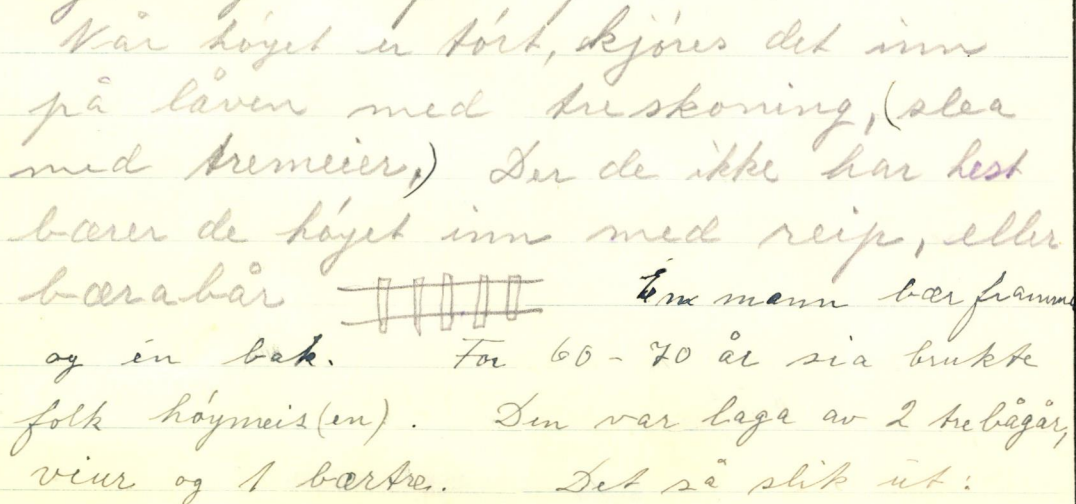 Når høyet er tórt, skjóres det inn
på låven med treskoning, (slea
med tremeier,) Der de ikke har hest
bærer de høyet inn med reip, eller
bærabår Èin mann bær framme
og én bak. For 60-70 år sia brukte
folk høymeis(en). Den var laga av 2 trebågår,
viur og 1 bærtre. Det så slik ut: